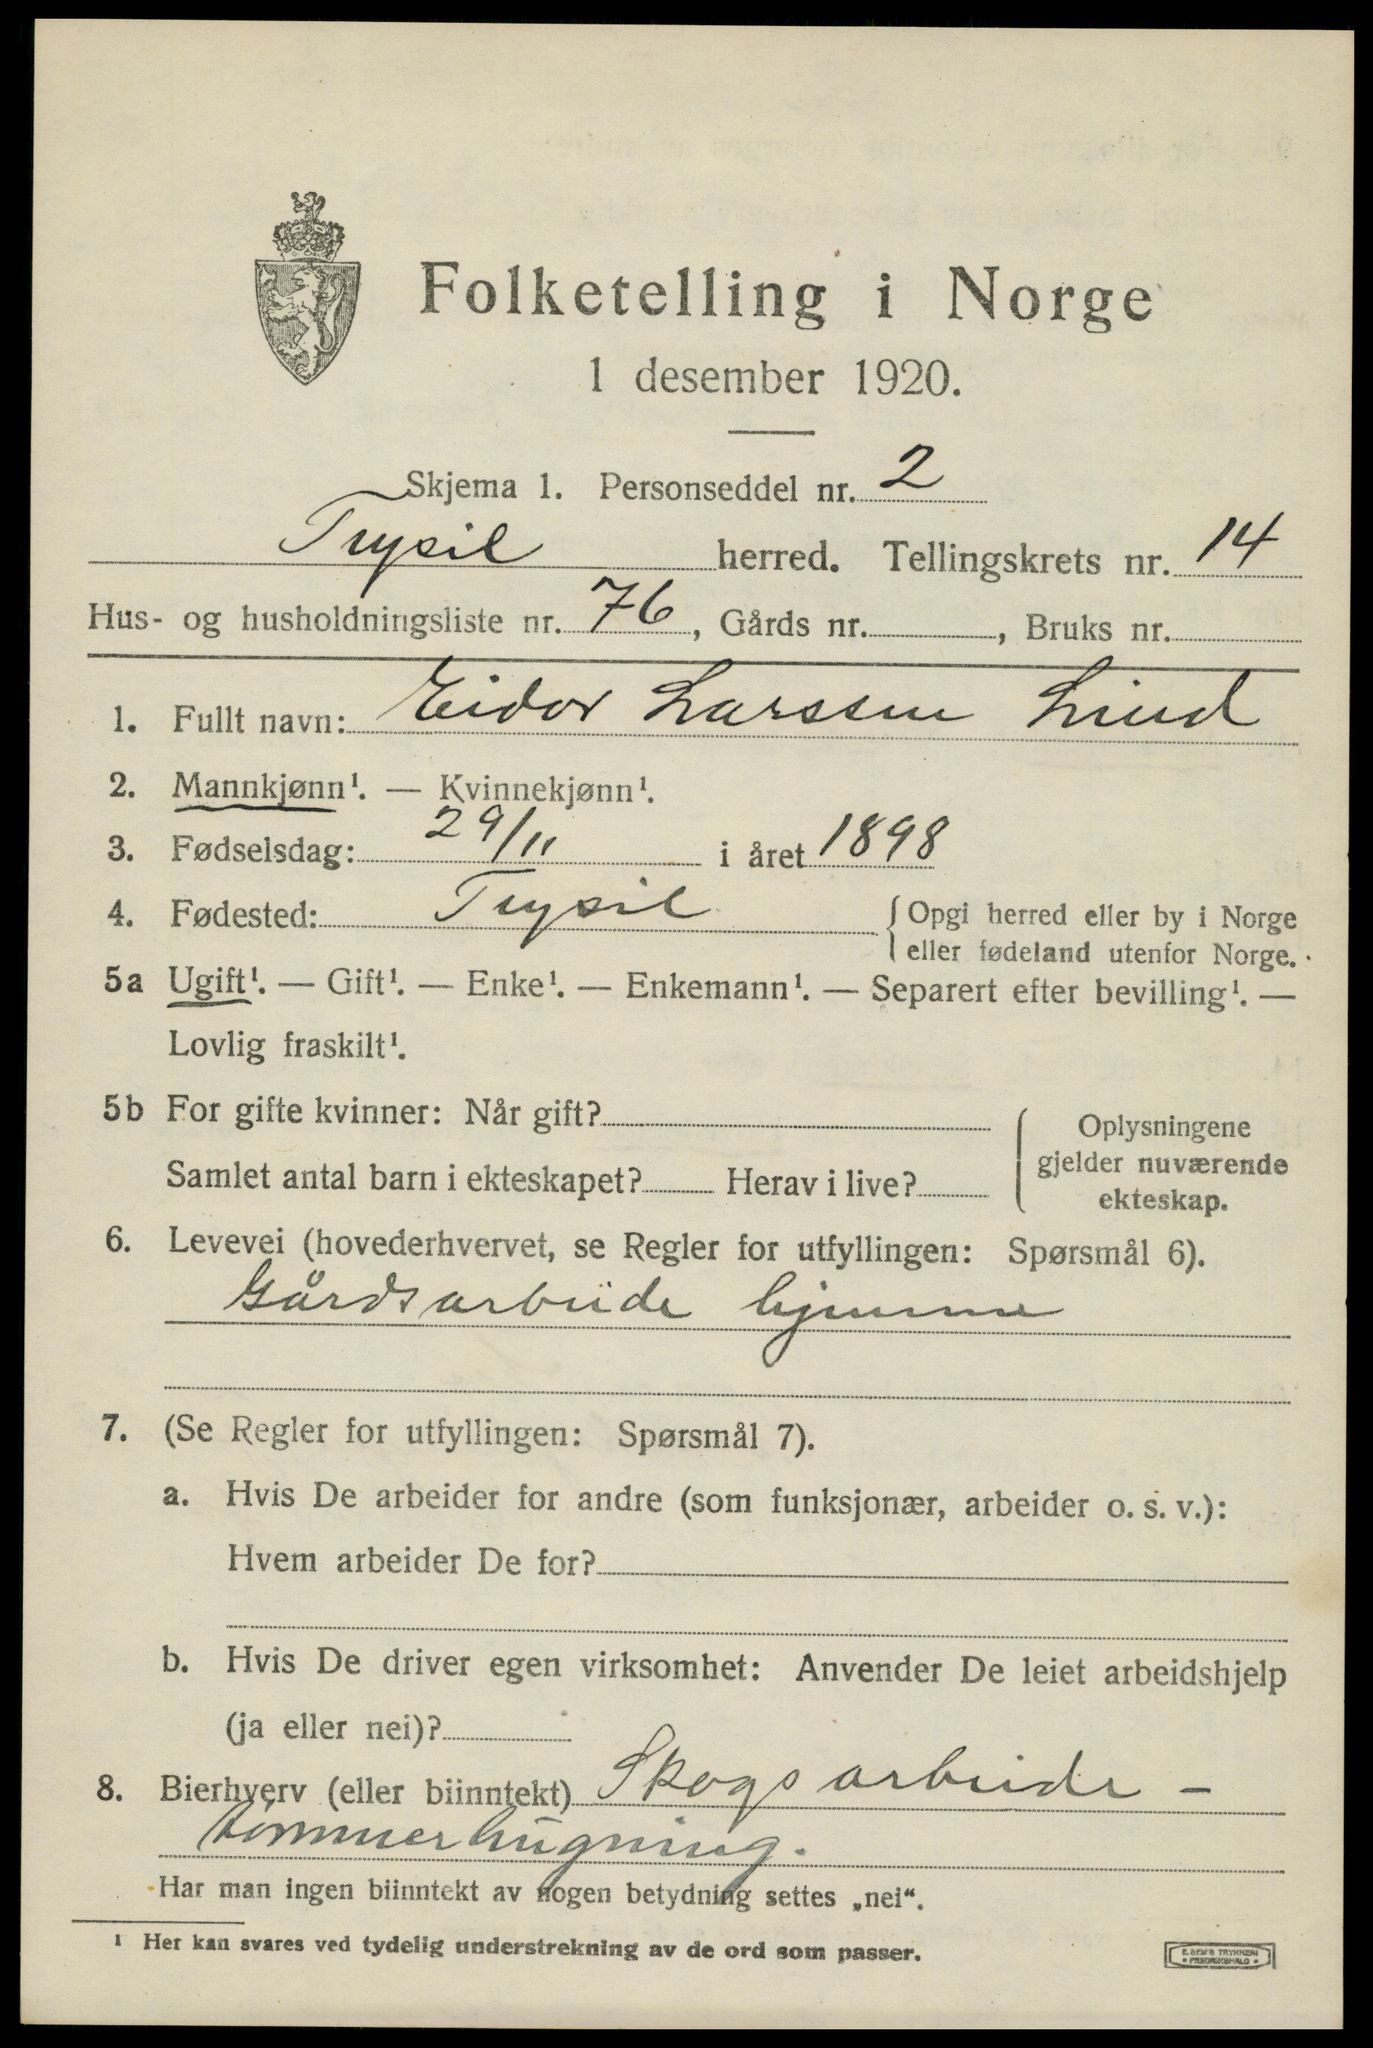 Folketelling i Norge
1 desember 1920.
Skjema 1. Personseddel nr. 2
Trysil herred. Tellingskrets nr. 14
Hus- og husholdningsliste nr. 76, Gårds nr. , Bruks nr.
1. Fullt navn: Eidor Larssen Lind
2. Mannkjønn¹. — Kvinnekjønn¹.
3. Fødselsdag: 29/11 i året 1898
4. Fødested: Trysil { Opgi herred eller by i Norge
eller fødeland utenfor Norge.
5a Ugift¹. — Gift¹. — Enke¹. — Enkemann¹. — Separert efter bevilling¹. —
Lovlig fraskilt¹.
5b For gifte kvinner: Når gift?
Samlet antal barn i ekteskapet? Herav i live?
Oplysningene
gjelder nuværende
ekteskap.
6. Levevei (hovederhvervet, se Regler for utfyllingen: Spørsmål 6).
Gårdsarbeide hjemme
7. (Se Regler for utfyllingen: Spørsmål 7).
a. Hvis De arbeider for andre (som funksjonær, arbeider o. s. v.):
Hvem arbeider De for?
b. Hvis De driver egen virksomhet: Anvender De leiet arbeidshjelp
(ja eller nei)?
8. Bierhverv (eller biinntekt) Skogsarbeide -
tømmerhugning.
Har man ingen biinntekt av nogen betydning settes „nei“.
¹ Her kan svares ved tydelig understrekning av de ord som passer.
E. SEM'S TRYKKERI
• FREDRIKSHALD •